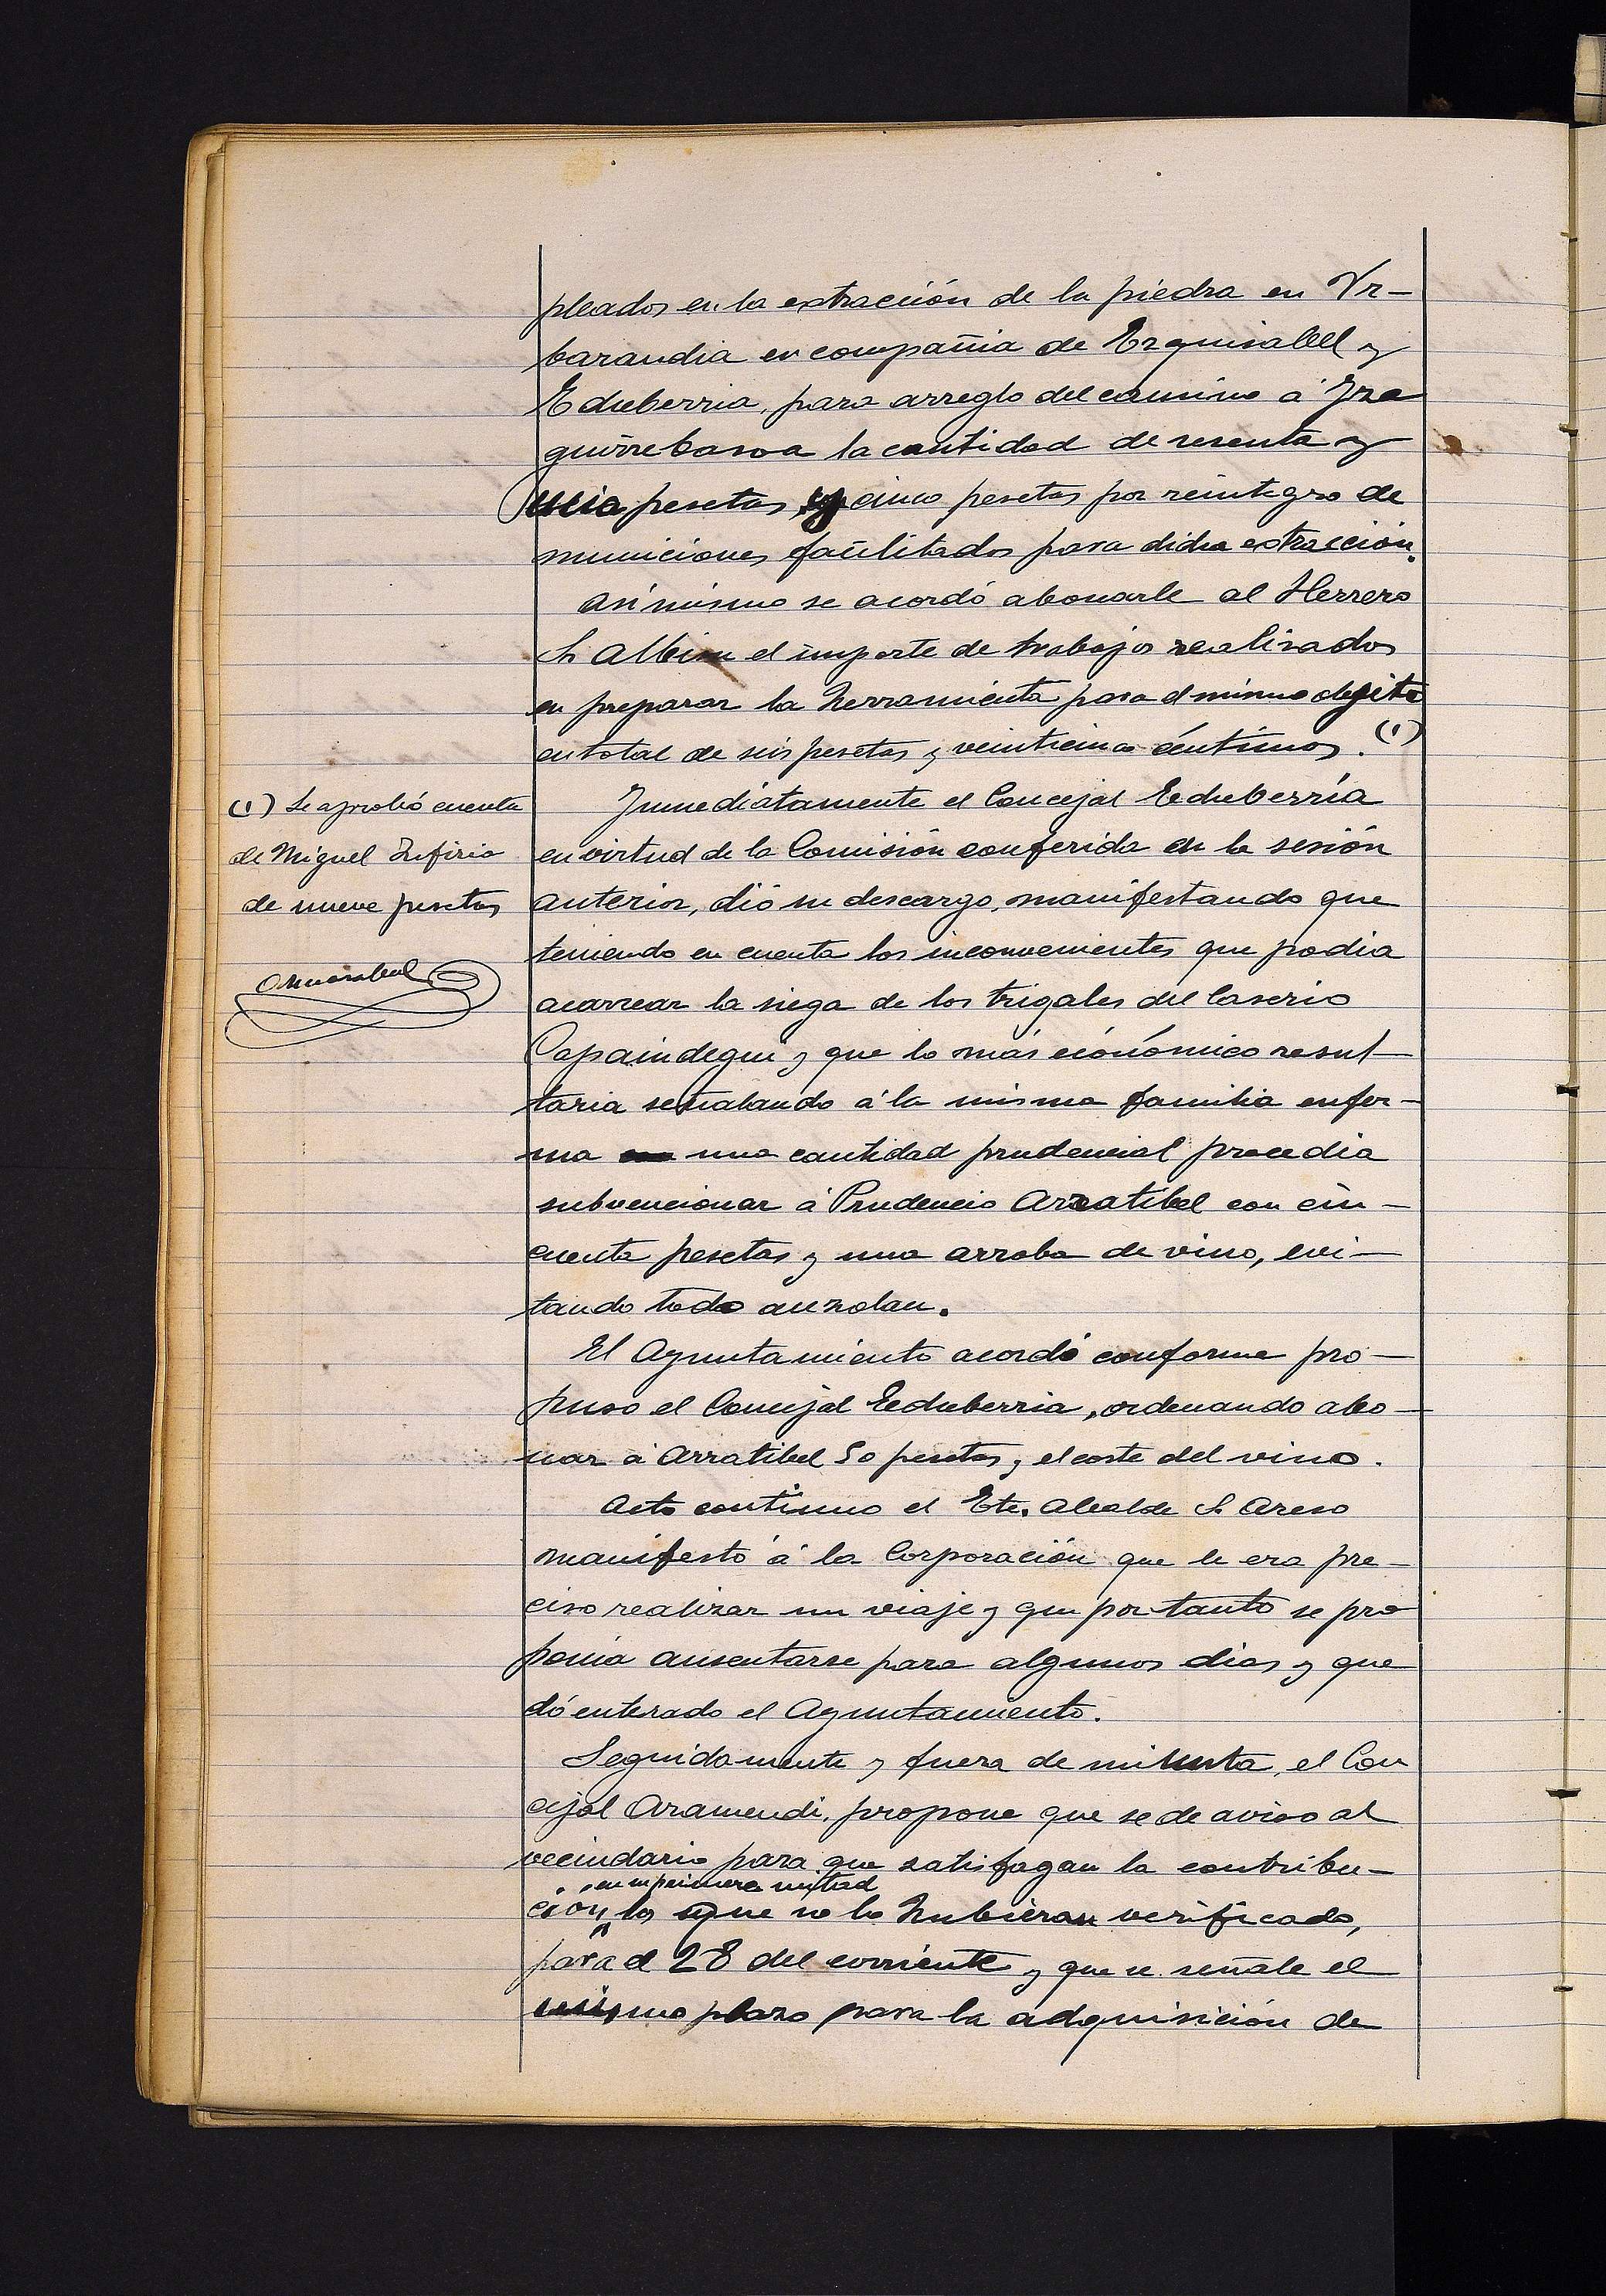 pleados en la extracción de la piedra en Vr-
barandia en compañia de Erquisabel y
Echeberria, para arreglo del camino á Yza
guirrebasoa la cantidad de sesenta y
pesetas y cinco pesetas por reintegro de
municiones facilitados para dicha extracción.
Asi mismo se acordó abonarle al Herrero
Sr Albisu el importe de trabajos realizados
en preparar la herramienta para el mismo objeto
en total de seis pesetas y veinticinco céntimos. (1)
Inmediatamente el Concejal Echeberría
en virtud de la Comisión conferida en la sesión
anterior, dió su descargo, manifestando que
teniendo en cuenta los inconvenientes que podia
acarrear la siega de los trigales del Caserio
Capaindegui y que lo más ecónómico resul-
taria señalando á la misma familia enfer-
ma una cantidad prudencial procedia
subvencionar á Prudencio Arratibel con cin-
cuenta pesetas y una arroba de vino, evi-
tando todo auzolan.
El Ayuntamiento acordó conforme pro-
puso el Concejal Echeberria, ordenando abo-
nar á Arratibel 50 pesetas y el coste del vino.
Acto continuo el Tte. Alcalde Sr Areso
manifestó á la Corporación que le era pre-
ciso realizar un viaje y que por tanto se pro
ponia ausentarse para algunos dias y que
dó enterado el Ayuntamiento.
Seguidamente y fuera de minuta, el Con
cejal Aramendi, propone que se de aviso al
vecindario para que satisfagan la contribu-
en su primera mitad
ción, los que no lo hubieran verificado,
para el 28 del corriente y que se señale el
mismo plazo para la adquisición de
(1) Se aprobó cuenta
de Miguel Zufiria
de nueve pesetas